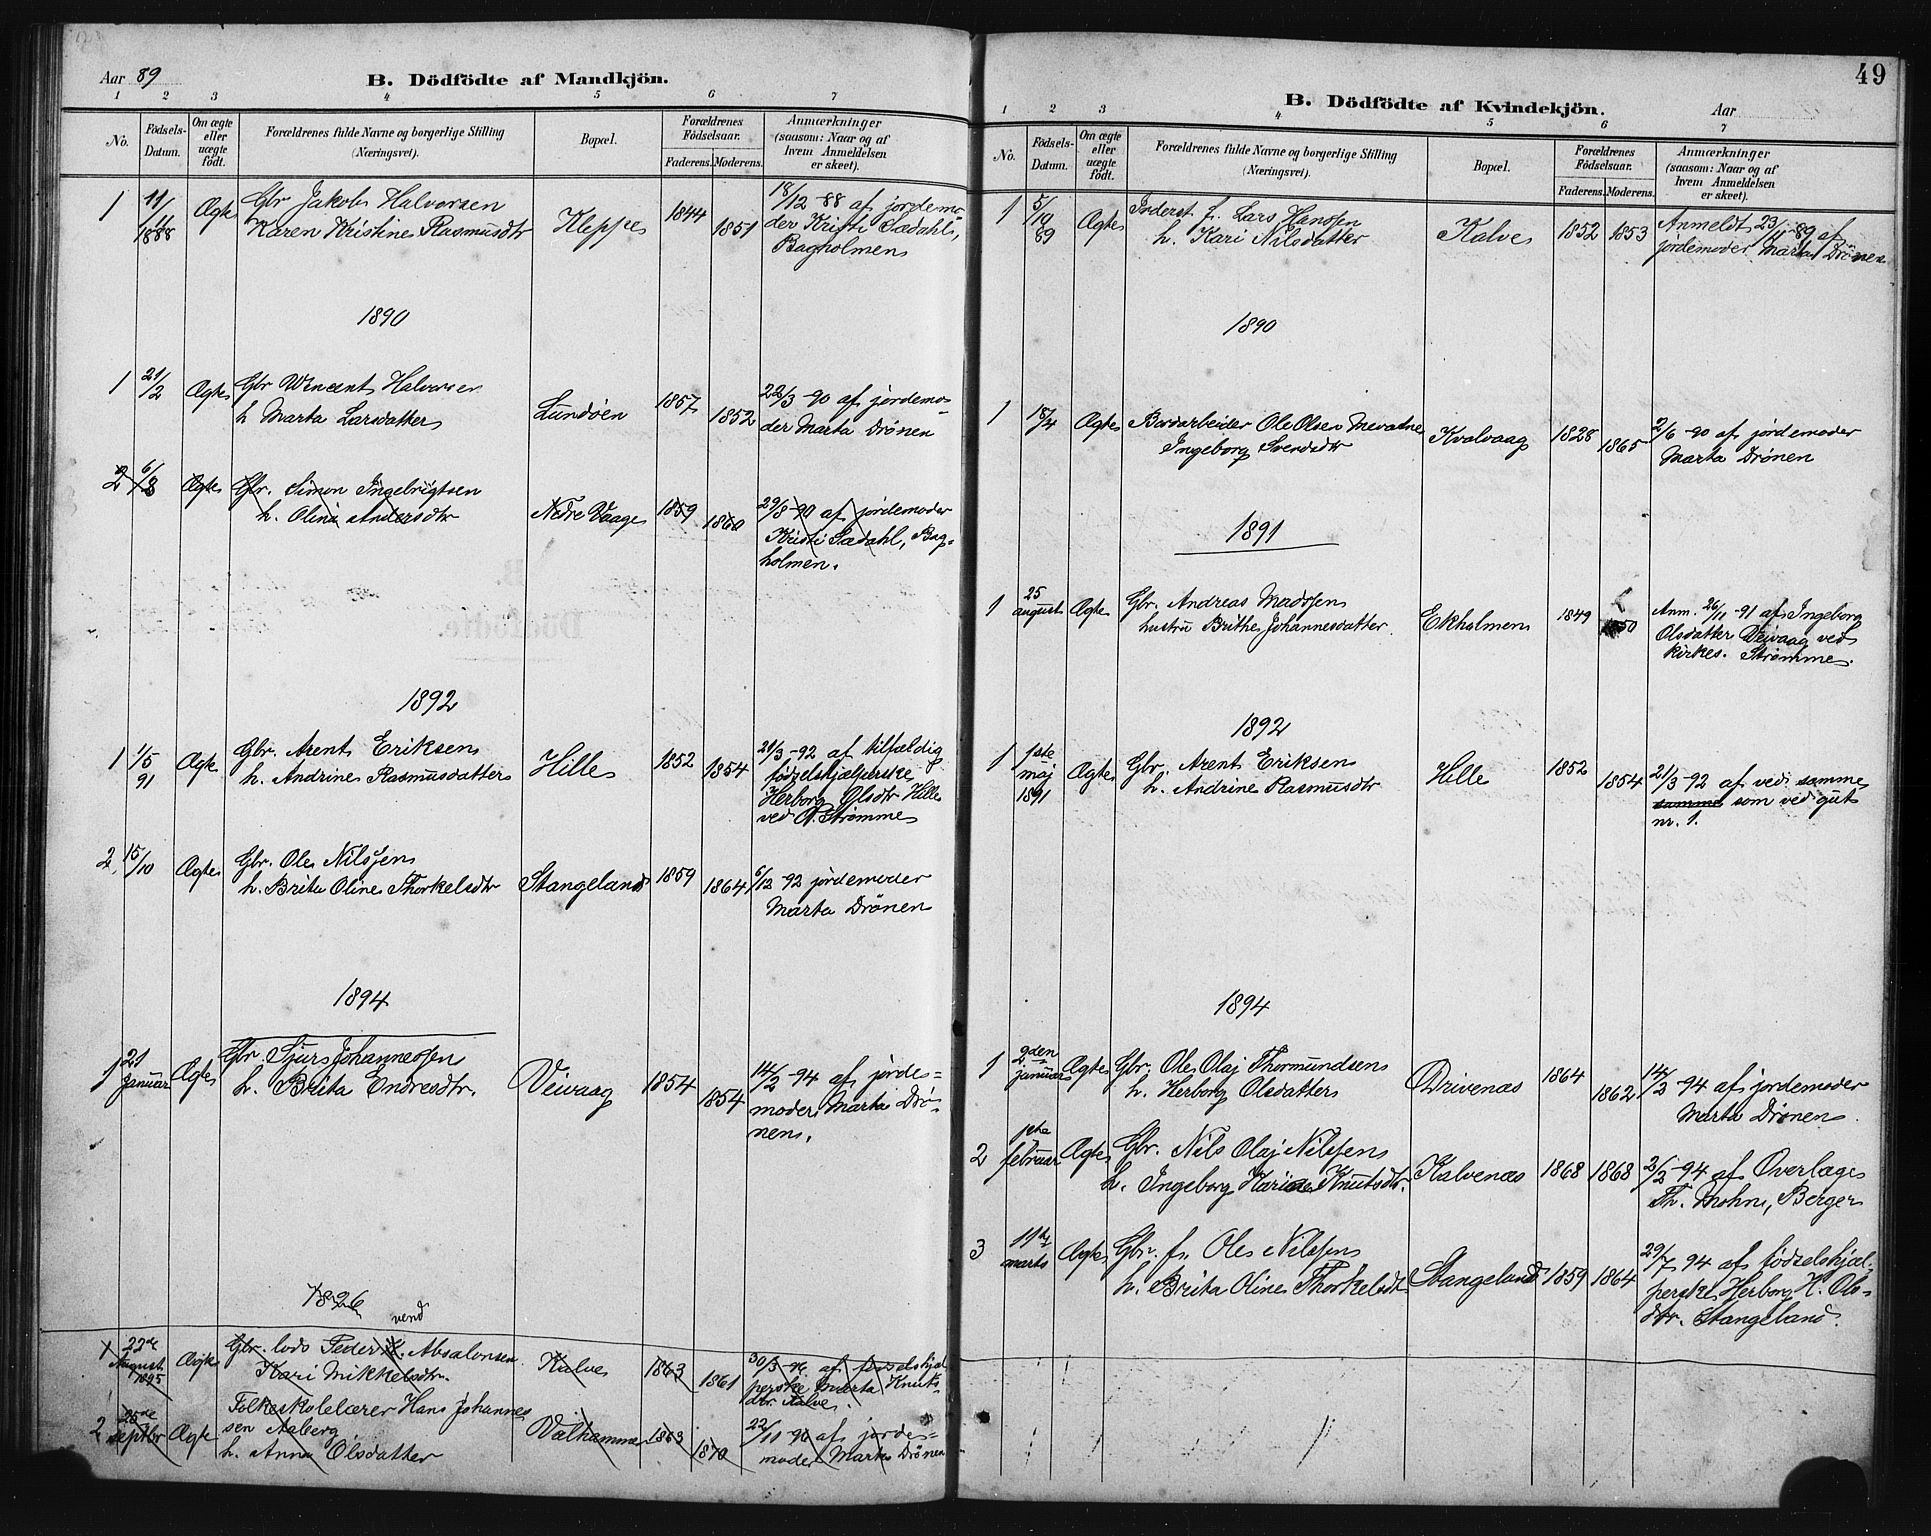 Aar 89
B. Dödfödte af Mandkjön.
1 2 3 4 5 6 7
No. Födsels-Datum. Om ægte eller uægte födt. Forældrenes fulde Navne og borgerlige Stilling (Næringsvei). Bopæl. Forældrenes Födselsaar. Faderens. Moderens. Anmærkninger (saasom: Naar og af hvem Anmeldelsen er skeet).
1 11/11 1888 Ægte Gbr Jakob Halvorsen Kleppe 1844 1851 18/12 -88 af jordemo-
Karen Kristine Rasmusdtr der Kristi Sædahl,
Bagholmen
1890
1 21/2 Ægte Gbr Wincent Halvorsen Lundöen 1857 1852 22/3 -90 af jordemo-
h. Marta Larsdatter der Marta Drönen
2 6/8 Ægte Gbr. Simon Ingebrigtsen Nedre Vaage 1859 1860 29/8 -90 af jordemoder
h. Olina Andersdtr Kristi Sædahl, Bag-
holmen.
1892
1 1/5 91 Ægte Gbr. Arent Eriksen Hille 1852 1854 21/3 -92 af tilfældig
h. Andrine Rasmusdatter födselshjælperske
Herborg Olsdtr Hille
ved A. Strömme
2 15/10 Ægte Gbr. Ole Nilssen Stangeland 1859 1864 6/12 92 jördemoder
h. Brita Oline Thorkelsdtr Marta Drönen
1894
1 21 januar Ægte Gbr. Sjurs Johannessen Veivaag 1854 1854 14/2 -94 af jorde-
h. Brita Endresdtr. moder Marta Drö-
nen.
1826
vend
1 22de August 1895 Ægte Gbr. lods Peder M. Absalonsen Kalve 1863 1861 30/3 -96 af födselshjæl
Kari Mikkelsdtr. perske Marta Knuts-
dtr. Kalve.
2 25de septbr Ægte Folkeskolelærer Hans Johannes Valhammer 1863 1870 22/11 -96 af jorde-
sen Aaberg moder Marta Drönen
h. Anna Olsdatter
49
B. Dödfödte af Kvindekjön.
Aar
1 2 3 4 5 6 7
No. Födsels-Datum. Om ægte eller uægte födt. Forældrenes fulde Navne og borgerlige Stilling (Næringsvei). Bopæl. Forældrenes Födselsaar. Faderens. Moderens. Anmærkninger (saasom: Naar og af hvem Anmeldelsen er skeet).
1 5/10 89 Ægte Inderst f. Lars Hanssen Kalve 1852 1853 Anmeldt 23/11 -89 af
h. Kari Nilsdatter jordemoder Marta Drönen
1890
1 18/4 Ægte Bordarbeider Ole Olsen Mevatne Kvalvaag 1828 1865 2/6 -90 af jordemoder
Ingeborg Svendsdtr Marta Drönen
1891
1 25 august Ægte Gbr. Andreas Madssen Ekholmen 1849 1850 Anm. 26/11 -91 af Ingeborg
hustru Brithe Johannesdatter. Olsdatter Veivaag ved
kirkes. Strömme.
1892
1 1ste maj 1891 Ægte Gbr. Arent Eriksen Hille 1852 1854 21/3 -92 af ved samme
h. Andrine Rasmusdtr samme som ved gut
nr. 1.
1894
1 2den januar Ægte Gbr. Ole Olaj Thormundsen Drivenæs 1864 1862 14/2 -94 af jordemoder
h. Herborg Olsdatter Marta Drönen.
2 1ste februar Ægte Gbr. Nils Olaj Nilssen Kalvenæs 1868 1868 2/2 -94 af Overlæge
h. Ingeborg Karine Knutsdtr. Th. Mohn, Bergen
3 11te marts Ægte Gbr. f. Ole Nilssen Stangeland 1859 1864 29/7 94 af födselshjæl-
h. Brita Oline Thorkelsdtr perske Herborg H. Ols-
dtr. Stangeland.